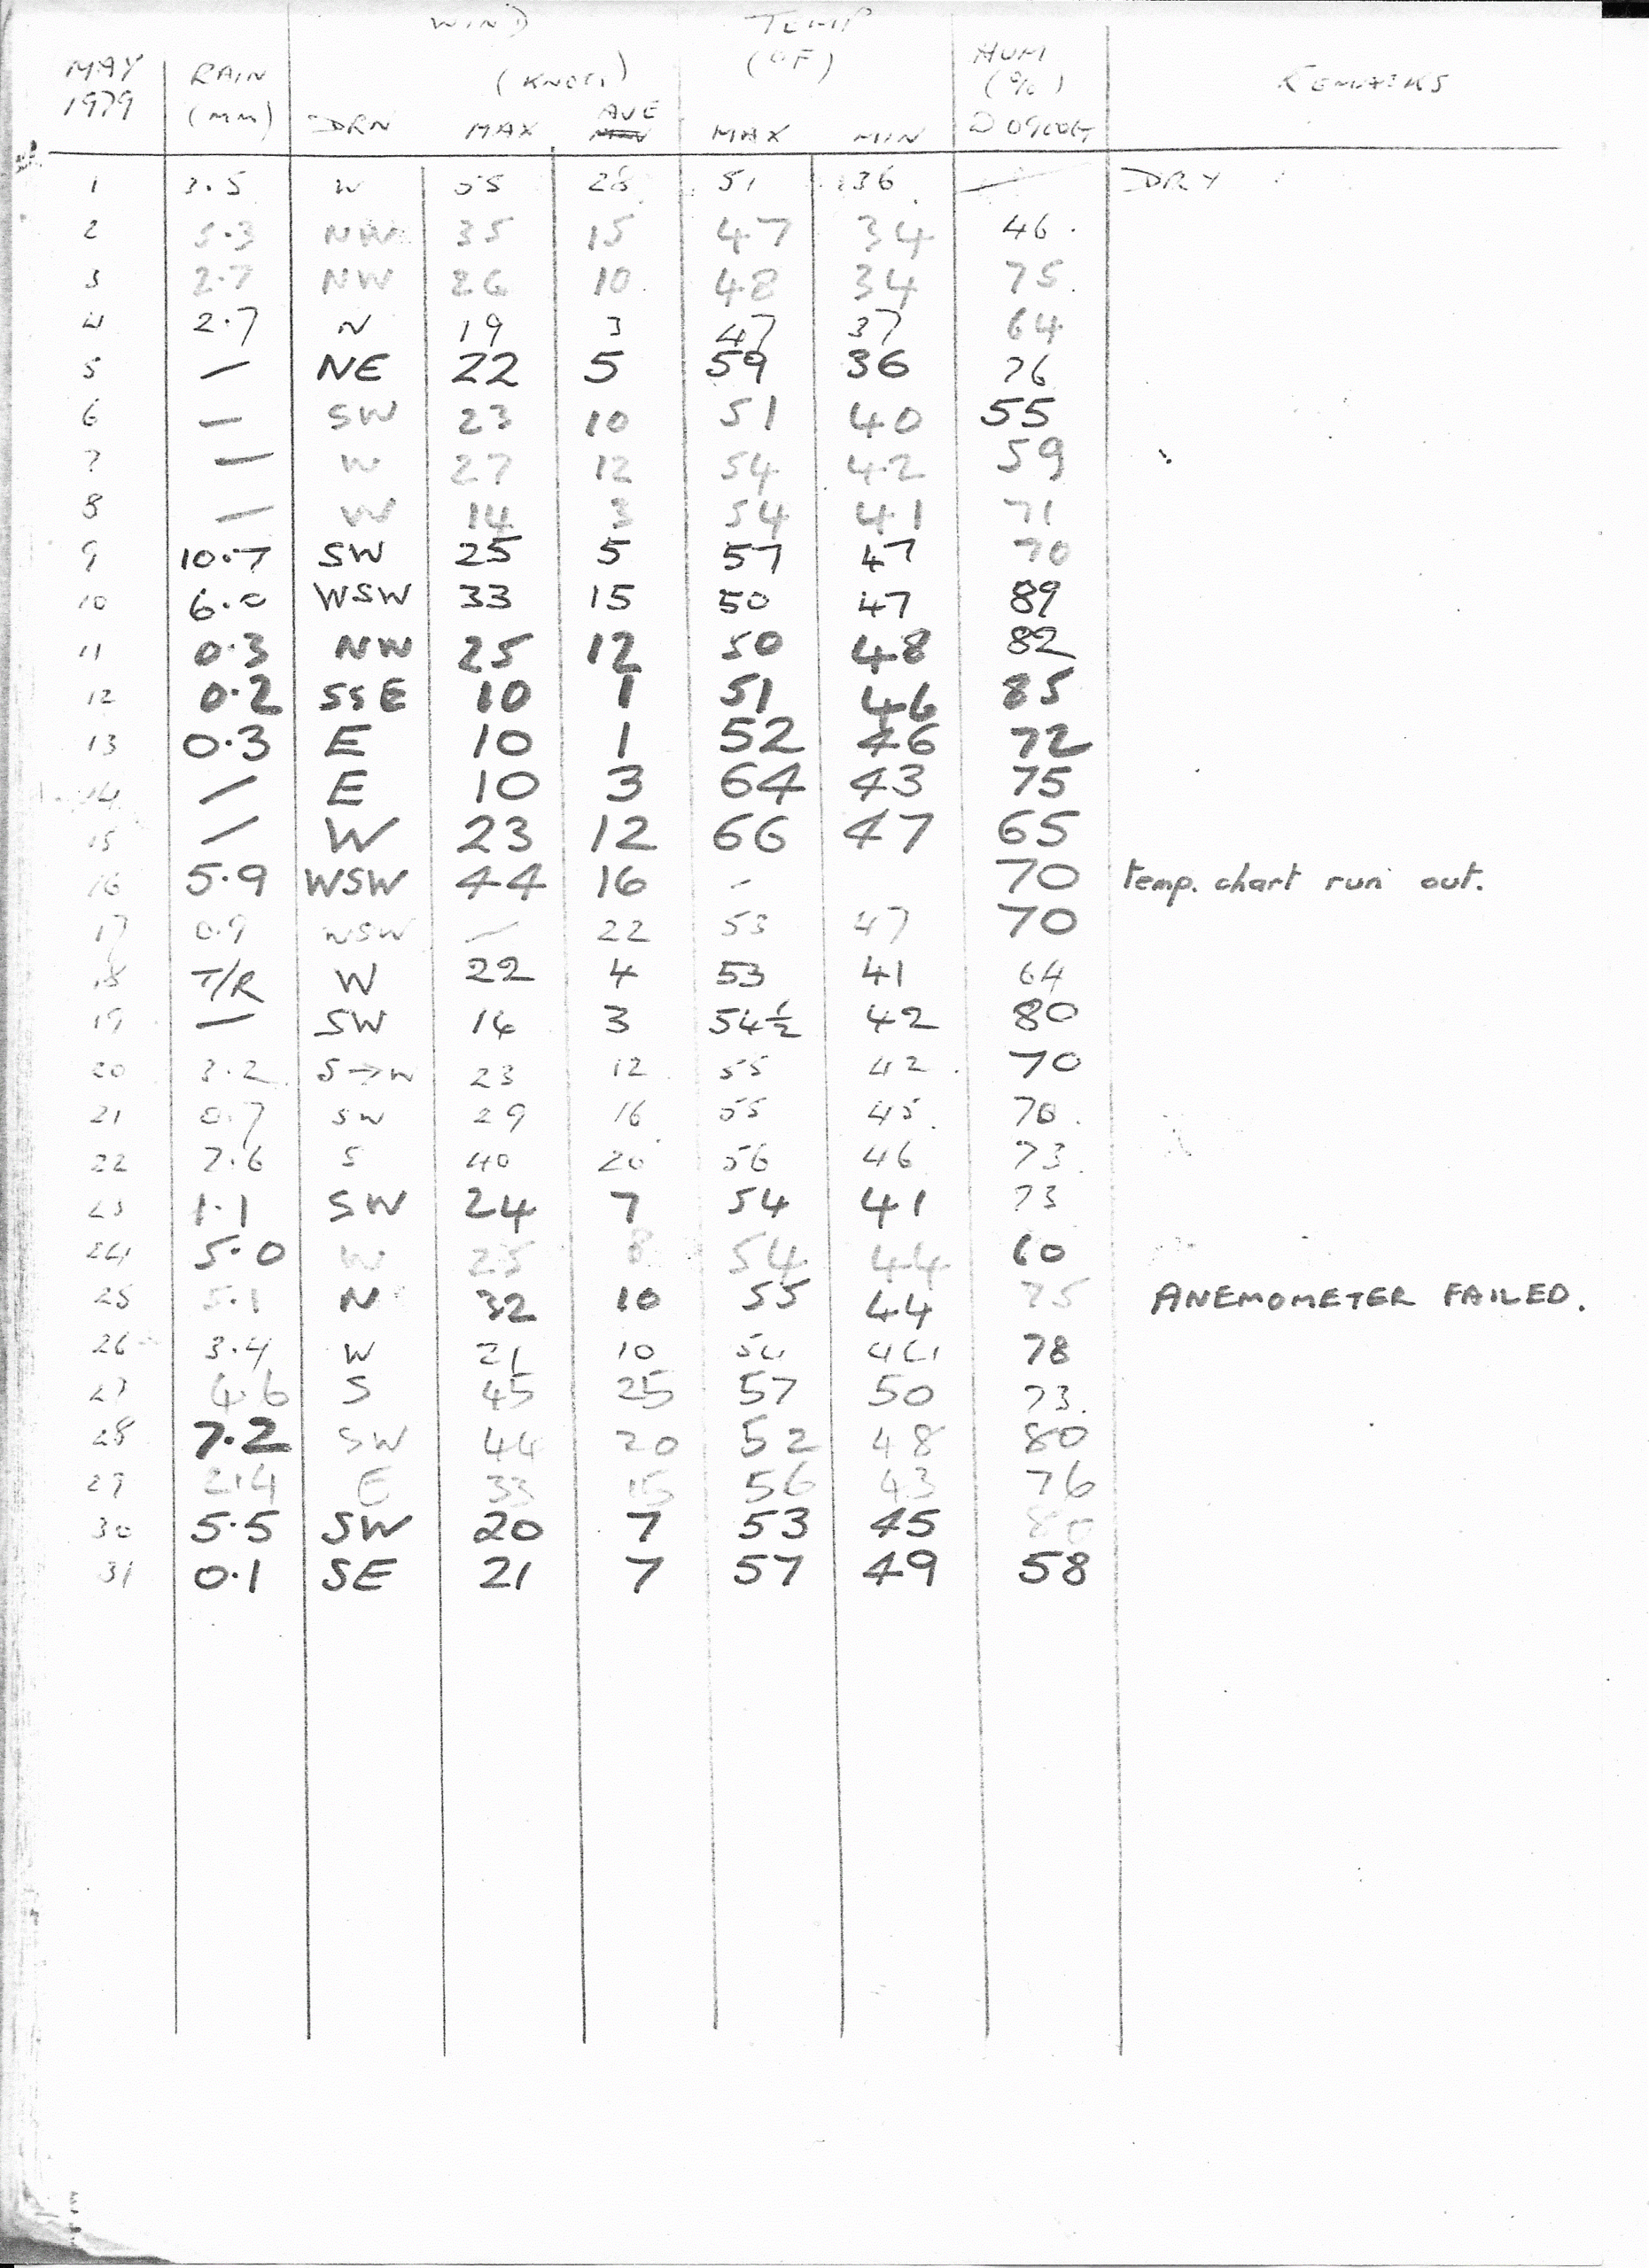 WIND TEMP
MAY RAIN (KNOTS) (OF) HUM REMARKS
1979 (MM) DRN MAX AVE MAX MIN (%) 0900GMT
1 3.5 W 55 28 51 36 — DRY
2 5.3 NW 35 15 47 34 46
3 2.7 NW 26 10 48 34 75
4 2.7 N 19 3 47 37 64
5 — NE 22 5 59 36 76
6 — SW 23 10 51 40 55
7 — W 27 12 54 42 59
8 — W 14 3 54 41 71
9 10.7 SW 25 5 57 47 70
10 6.0 WSW 33 15 50 47 89
11 0.3 NW 25 12 50 48 82
12 0.2 SSE 10 1 51 46 85
13 0.3 E 10 1 52 46 72
14 — E 10 3 64 43 75
15 — W 23 12 66 47 65
16 5.9 WSW 44 16 - 70 temp. chart run out.
17 0.9 WSW — 22 53 47 70
18 T/R W 22 4 53 41 64
19 — SW 14 3 54½ 42 80
20 3.2 S→W 23 12 55 42 70
21 0.7 SW 29 16 55 45 70
22 7.6 S 40 20 56 46 73
23 1.1 SW 24 7 54 41 73
24 5.0 W 25 8 54 44 60
25 5.1 N 32 10 55 44 75 ANEMOMETER FAILED.
26 3.4 W 21 10 54 44 78
27 4.6 S 45 25 57 50 73
28 7.2 SW 44 20 52 48 80
29 2.4 E 33 15 56 43 76
30 5.5 SW 20 7 53 45 80
31 0.1 SE 21 7 57 49 58